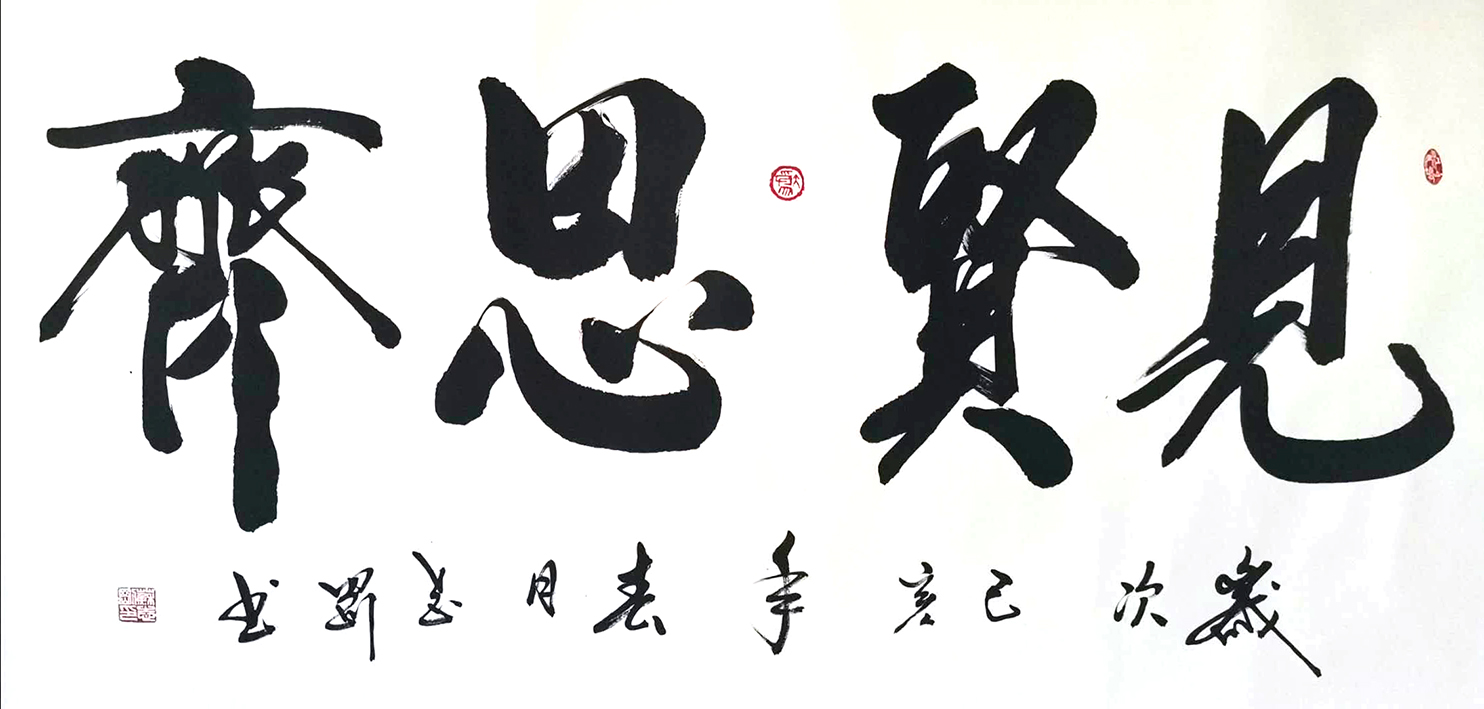 見賢思齊
歲次己亥年春月 書